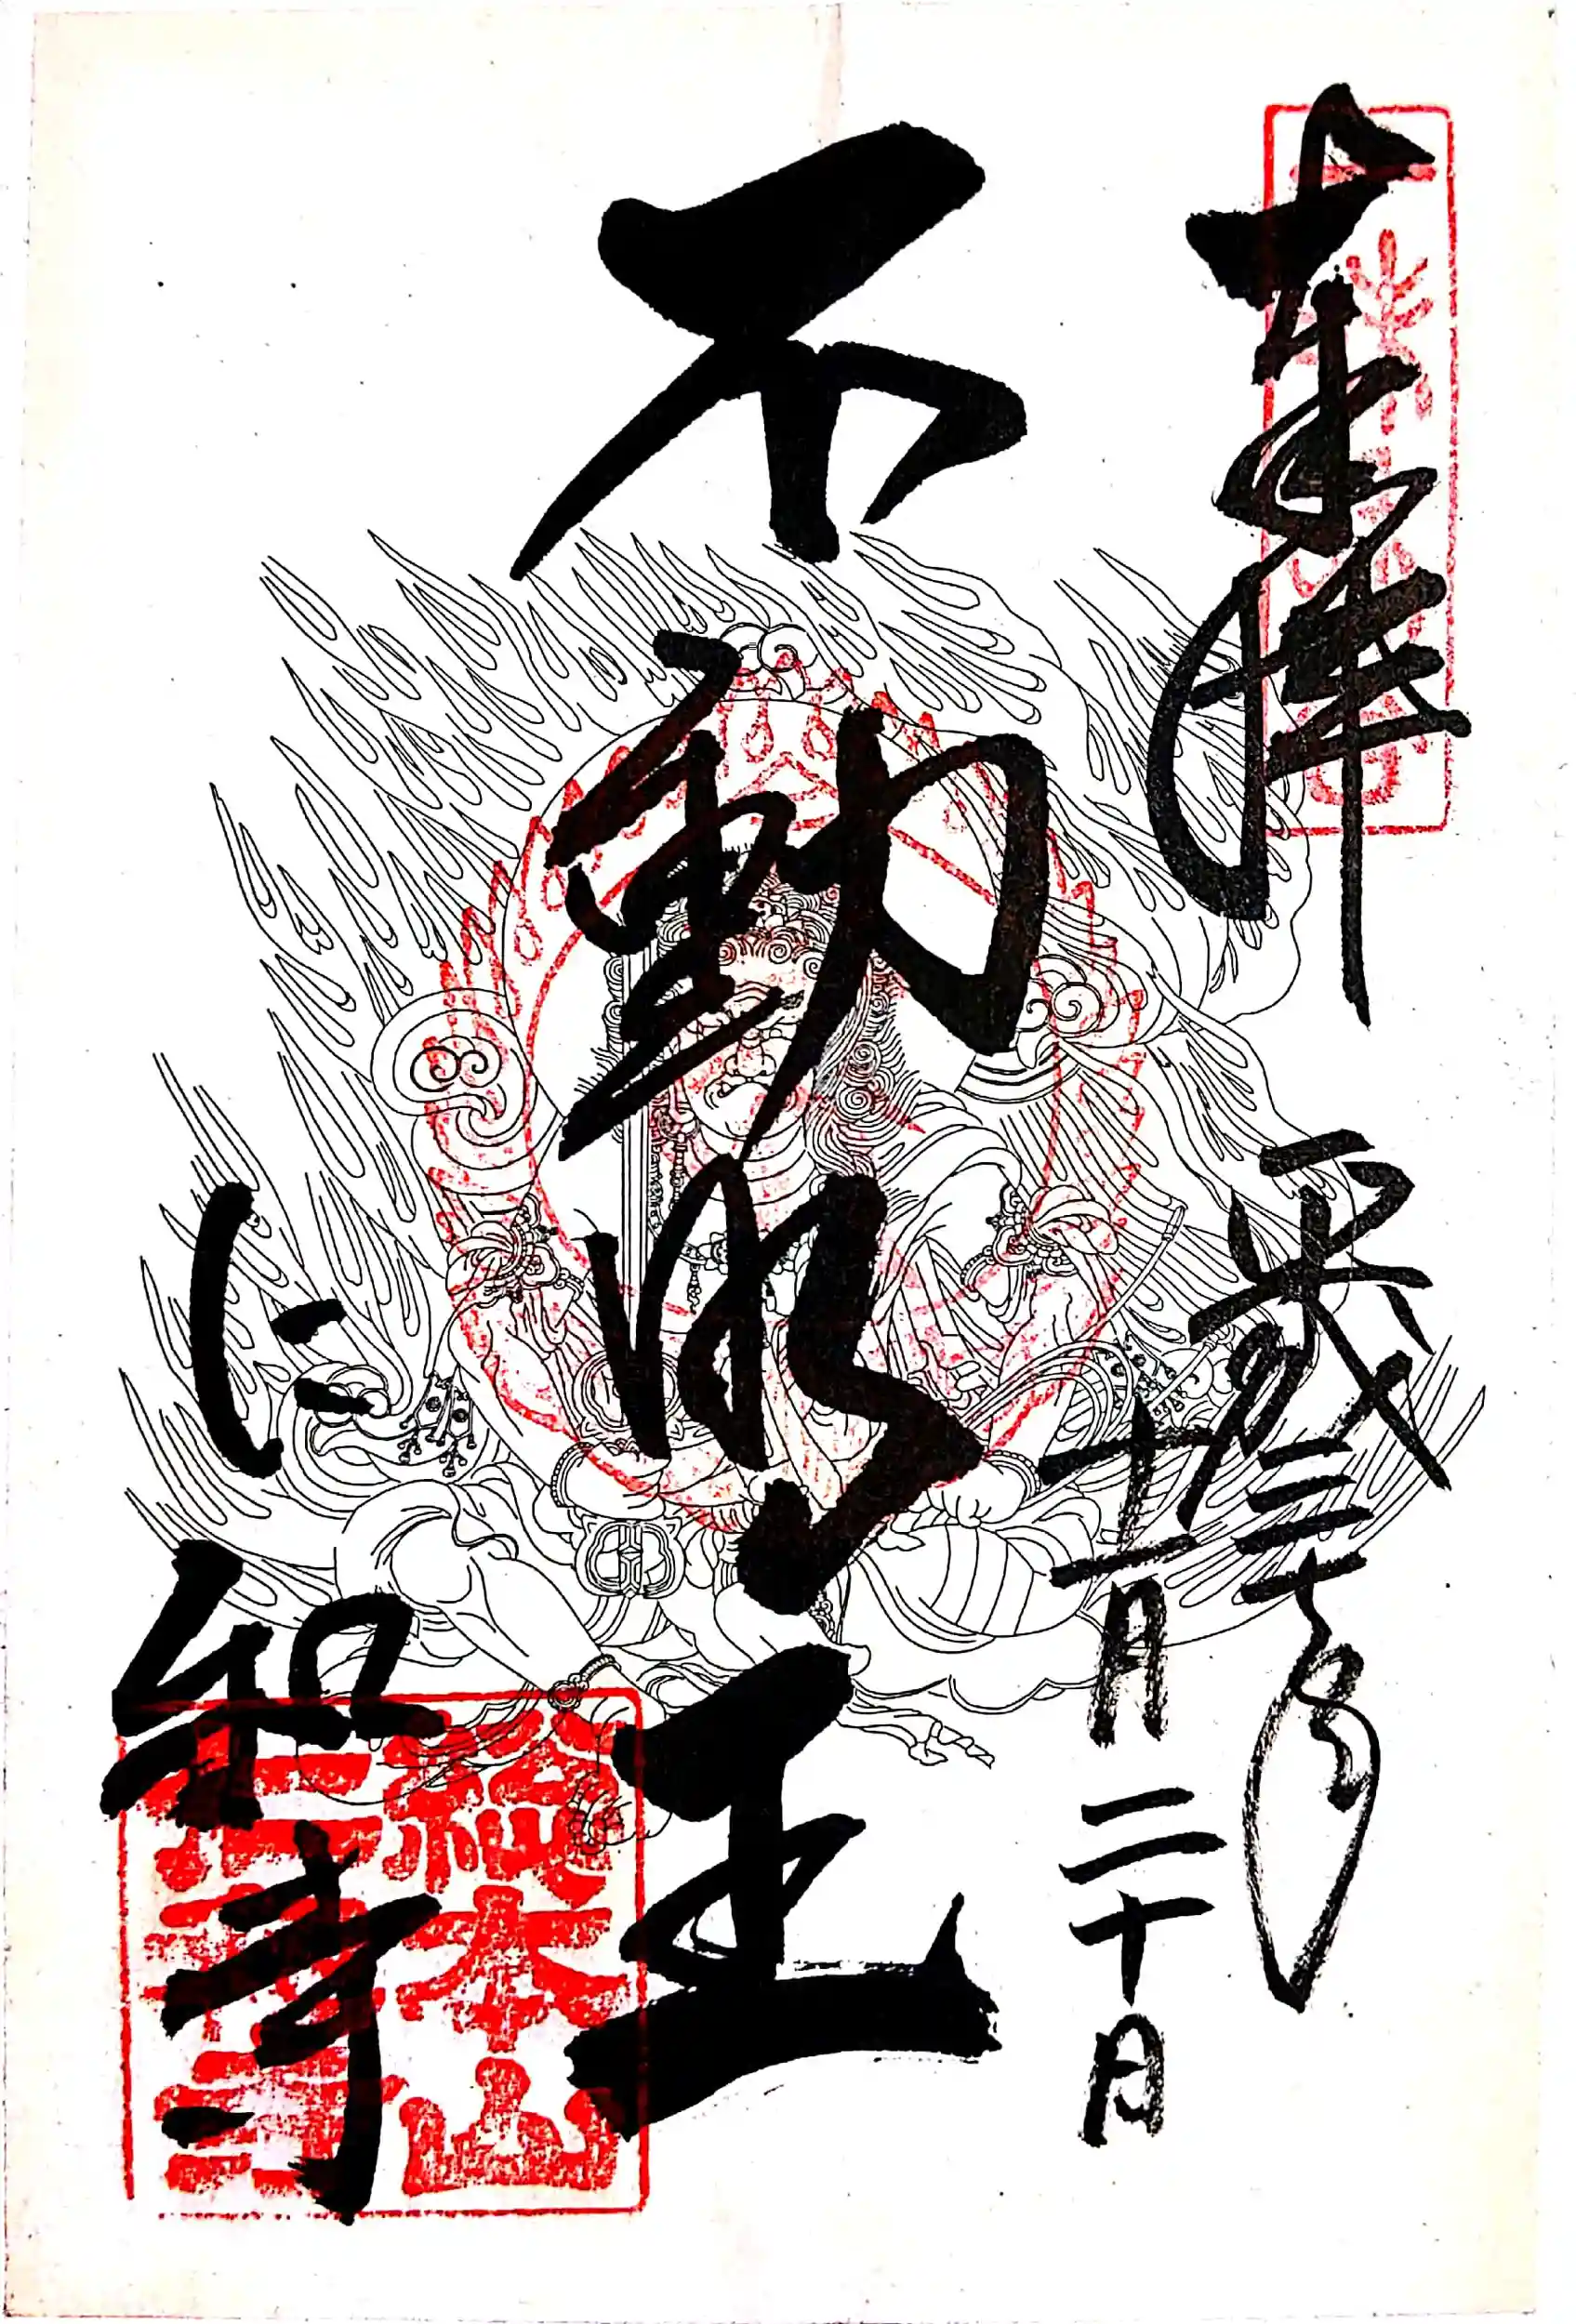 奉拝
平成三十年
十一月二十日
不動明王
仁和寺
総本山
仁和寺